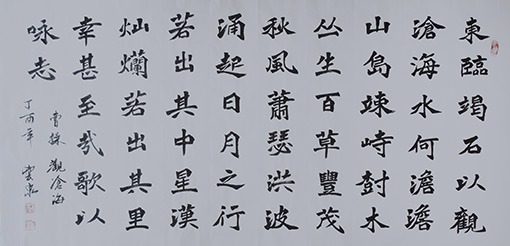 東臨竭石以觀
滄海水何澹澹
山島竦峙尌木
丛生百草豐茂
秋風蕭瑟洪波
涌起日月之行
若出其中星漢
灿爛若出其里
幸甚至哉歌以
咏志
曹操 觀滄海
丁酉年